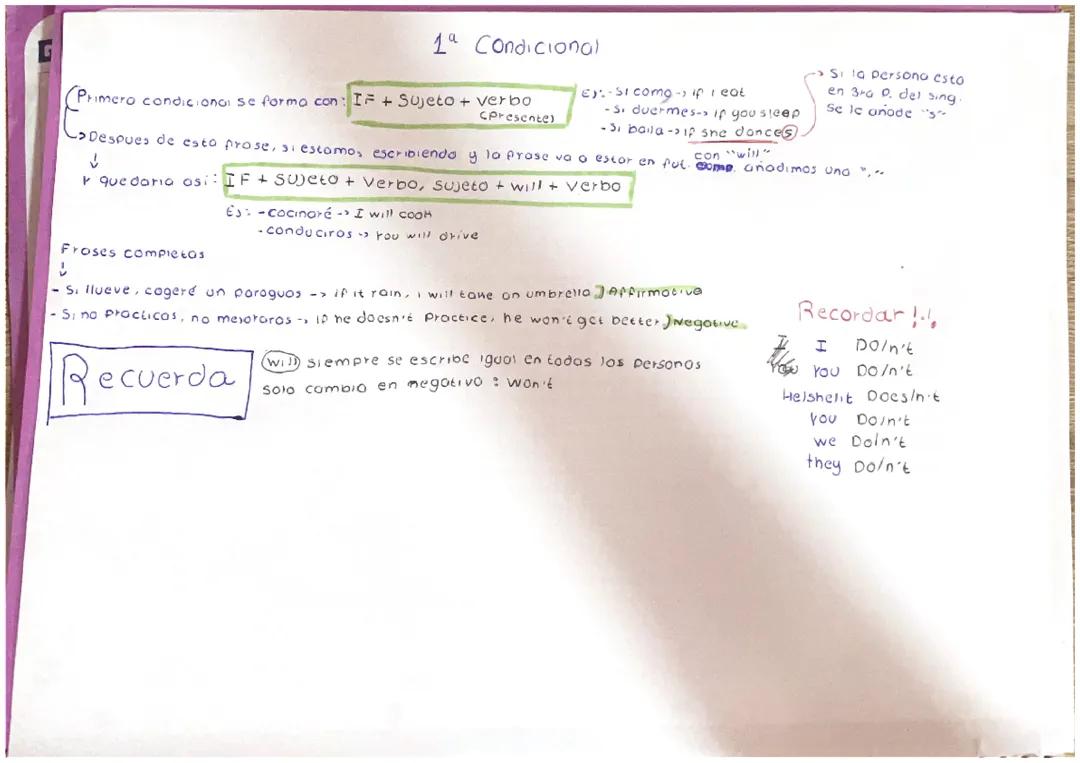 1ª Condicional
Primero condicional se forma con: IF + Sujeto + verbo
(Presente)
Ej: - Si como -> if I eat
- Si duermes -> if you sleep
- Si baila -> if she dances
Si la persona esta
en 3ra p. del sing.
se le añade "s"
Despues de esta frase, si estamos escribiendo y la frase va a estar en fut. con "will" añadimos una ","
Y quedaria asi: IF + Sujeto + Verbo, sujeto + will + verbo
Ej: - cocinaré -> I will cook
- conduciras -> You will drive
Frases completas
- Si llueve, cogeré un paraguas -> if it rain, i will take an umbrella } Affirmative
- Si no practicas, no mejoraras -> if he doesn't practice, he won't get better } Negative
Recuerda
will siempre se escribe igual en todas las personas
solo cambia en negativo: won't
Recordar!!
I Do/n't
You Do/n't
He/she/it Does/n't
you Do/n't
we Do/n't
they Do/n't